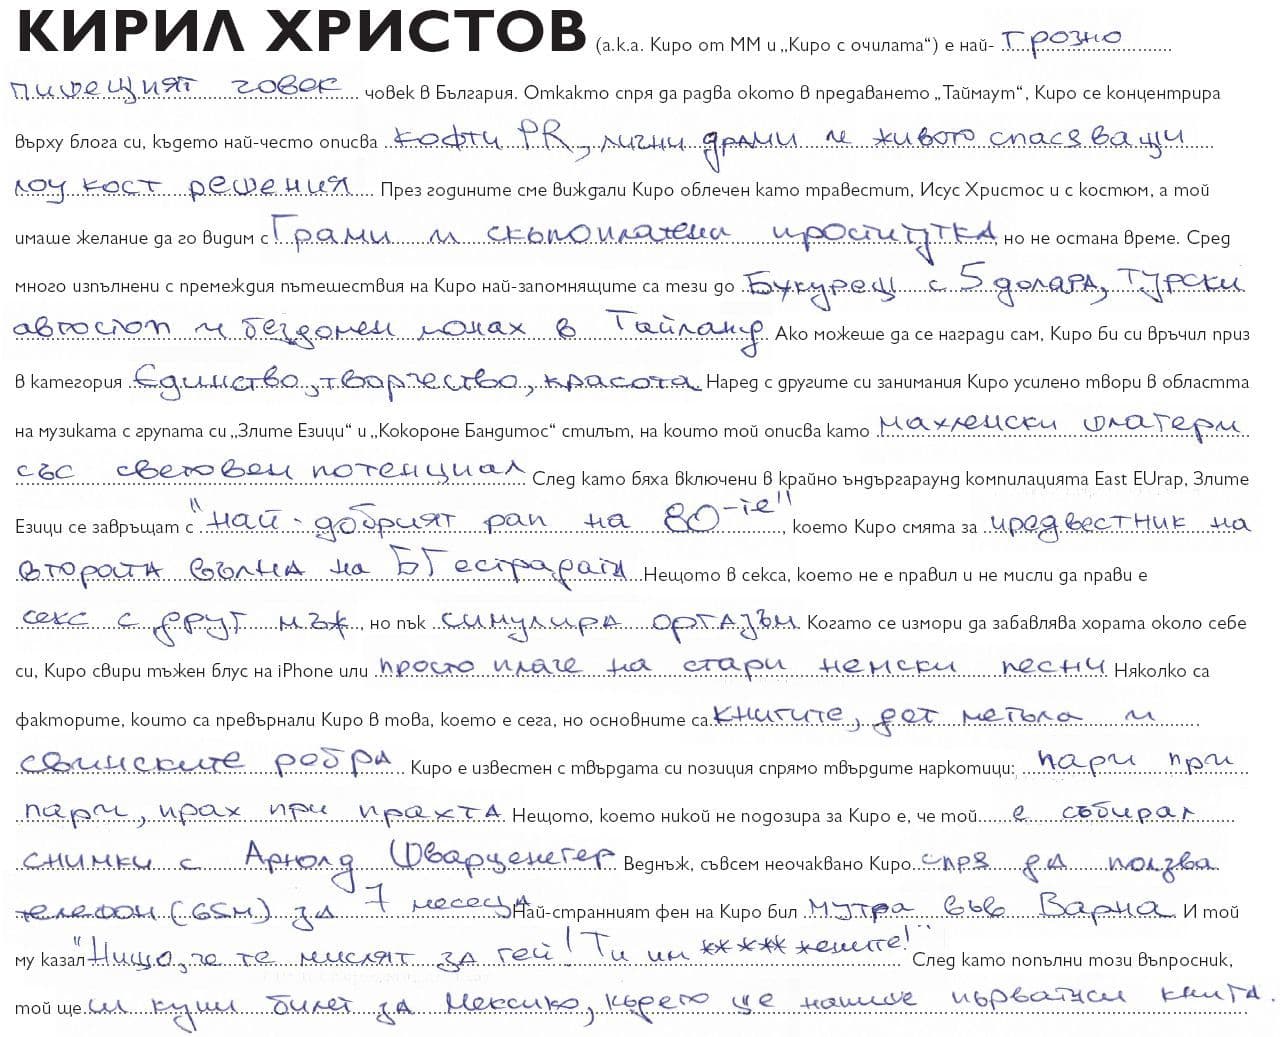 КИРИЛ ХРИСТОВ (a.k.a. Киро от ММ и „Киро с очилата“) е най- грозно
пишещият човек човек в България. Откакто спря да радва окото в предаването „Таймаут“, Киро се концентрира
върху блога си, където най-често описва кофти PR, лични драми и живото спасяващи
лоу кост решения През годините сме виждали Киро облечен като травестит, Исус Христос и с костюм, а той
имаше желание да го видим с Грами и скъпоплатена проститутка, но не остана време. Сред
много изпълнени с премеждия пътешествия на Киро най-запомнящите са тези до Букурещ с 5 долара, турски
автостоп и бездомен монах в Тайланд Ако можеше да се награди сам, Киро би си връчил приз
в категория Единство, творчество, красота Наред с другите си занимания Киро усилено твори в областта
на музиката с групата си „Злите Езици“ и „Кокороне Бандитос“ стилът, на които той описва като махленски шлагери
със световен потенциал След като бяха включени в крайно ъндърграунд компилацията East EUrap, Злите
Езици се завръщат с "най-добрият рап на 80-те", което Киро смята за предвестник на
втората вълна на БГ естрадата Нещото в секса, което не е правил и не мисли да прави е
секс с друг мъж, но пък симулира оргазъм Когато се измори да забавлява хората около себе
си, Киро свири тъжен блус на iPhone или просто плаче на стари немски песни Няколко са
факторите, които са превърнали Киро в това, което е сега, но основните са книгите, дет метъла и
свинските ребра Киро е известен с твърдата си позиция спрямо твърдите наркотици: пари при
пари, прах при прахта Нещото, което никой не подозира за Киро е, че той е събирал
снимки с Арнолд Шварценегер Веднъж, съвсем неочаквано Киро спря да ползва
телефон (GSM) за 7 месеца Най-странният фен на Киро бил мутра във Варна И той
му казал "Нищо, че те мислят за гей! Ти им **** жените!" След като попълни този въпросник,
той ще си купи билет за Мексико, където ще напише първата си книга.